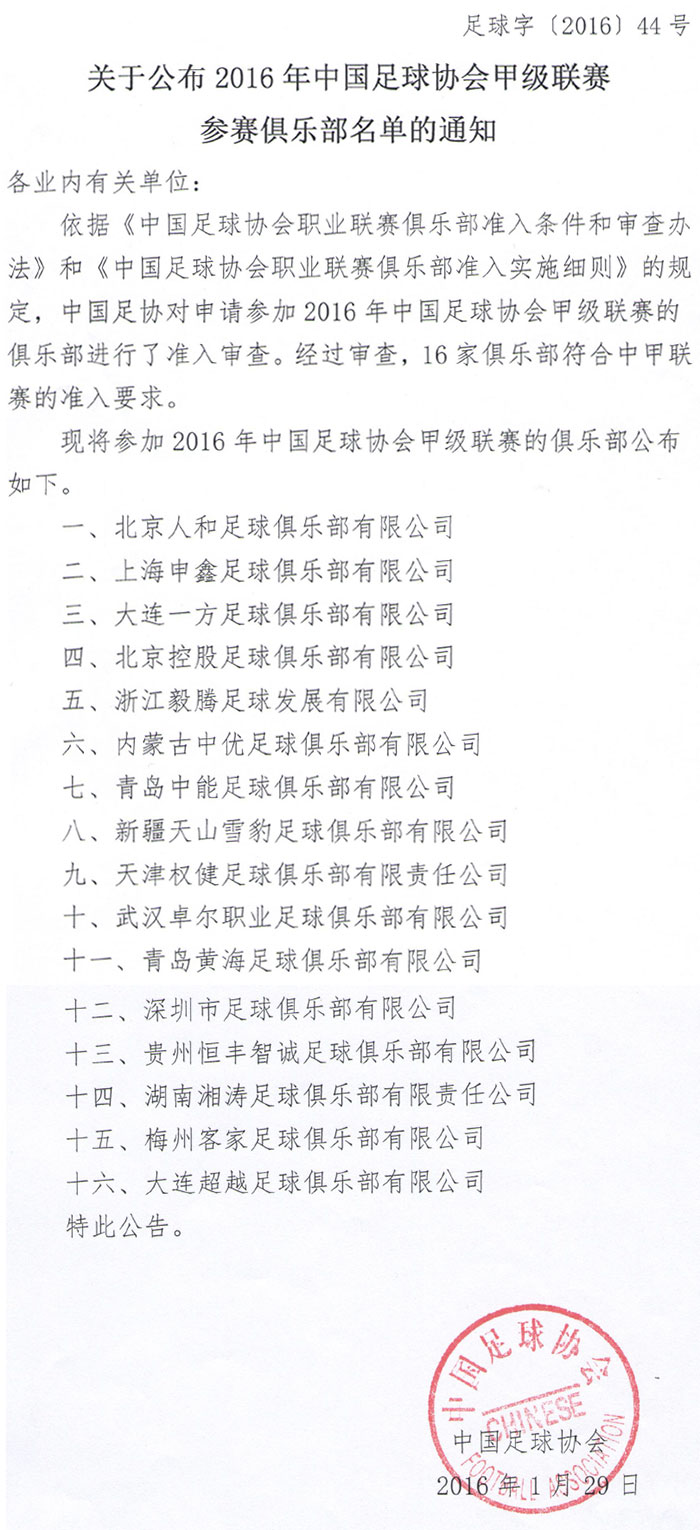 足球字〔2016〕44号
关于公布2016年中国足球协会甲级联赛
参赛俱乐部名单的通知
各业内有关单位：
依据《中国足球协会职业联赛俱乐部准入条件和审查办
法》和《中国足球协会职业联赛俱乐部准入实施细则》的规
定，中国足协对申请参加2016年中国足球协会甲级联赛的
俱乐部进行了准入审查。经过审查，16家俱乐部符合中甲联
赛的准入要求。
现将参加2016年中国足球协会甲级联赛的俱乐部公布
如下。
一、北京人和足球俱乐部有限公司
二、上海申鑫足球俱乐部有限公司
三、大连一方足球俱乐部有限公司
四、北京控股足球俱乐部有限公司
五、浙江毅腾足球发展有限公司
六、内蒙古中优足球俱乐部有限公司
七、青岛中能足球俱乐部有限公司
八、新疆天山雪豹足球俱乐部有限公司
九、天津权健足球俱乐部有限责任公司
十、武汉卓尔职业足球俱乐部有限公司
十一、青岛黄海足球俱乐部有限公司
十二、深圳市足球俱乐部有限公司
十三、贵州恒丰智诚足球俱乐部有限公司
十四、湖南湘涛足球俱乐部有限责任公司
十五、梅州客家足球俱乐部有限公司
十六、大连超越足球俱乐部有限公司
特此公告。
中国足球协会
CHINESE
FOOTBALL ASSOCIATION
中国足球协会
2016年1月29日